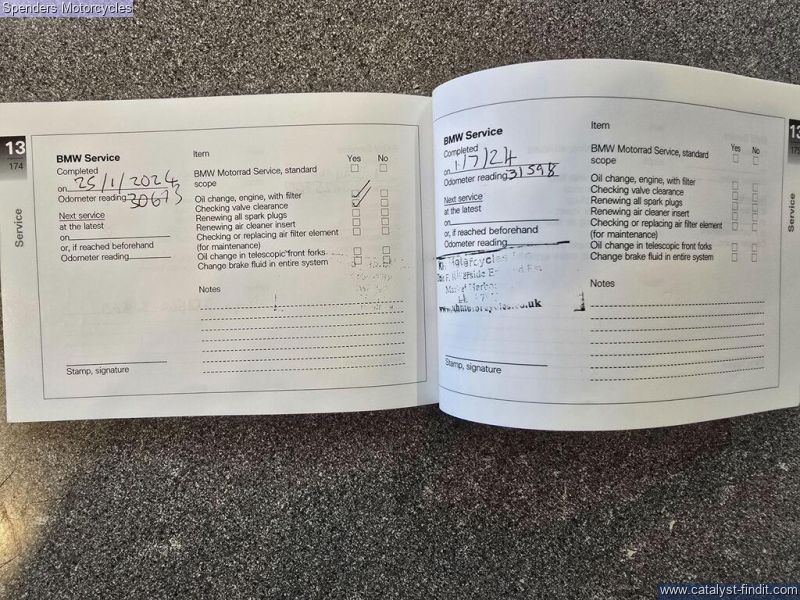 Spenders Motorcycles
13
174
Service
BMW Service
Completed
on 25/1/2024
Odometer reading 30673
Next service
at the latest
on
or, if reached beforehand
Odometer reading
Stamp, signature
Item
Yes No
BMW Motorrad Service, standard
scope
Oil change, engine, with filter
Checking valve clearance
Renewing all spark plugs
Renewing air cleaner insert
Checking or replacing air filter element
(for maintenance)
Oil change in telescopic front forks
Change brake fluid in entire system
Notes
BMW Service
Completed
on 1/7/24
Odometer reading 31598
Next service
at the latest
on
or, if reached beforehand
Odometer reading
Motorcycles
Riverside
Market Harbor
Stamp, signature
Item
Yes No
BMW Motorrad Service, standard
scope
Oil change, engine, with filter
Checking valve clearance
Renewing all spark plugs
Renewing air cleaner insert
Checking or replacing air filter element
(for maintenance)
Oil change in telescopic front forks
Change brake fluid in entire system
Notes
13
Service
www.catalyst-findit.com